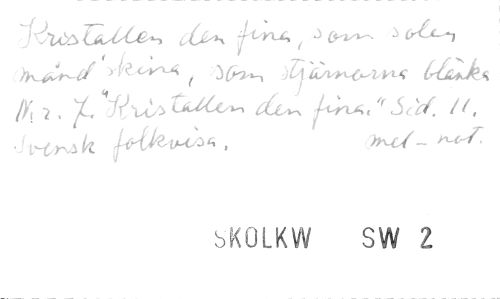 Kristallen den fina, som solen
månd' skina, som stjärnorna blänka
N:r. 7. "Kristallen den fina." Sid. 11.
Svensk folkvisa. mel-not.
SKOLKW SW 2